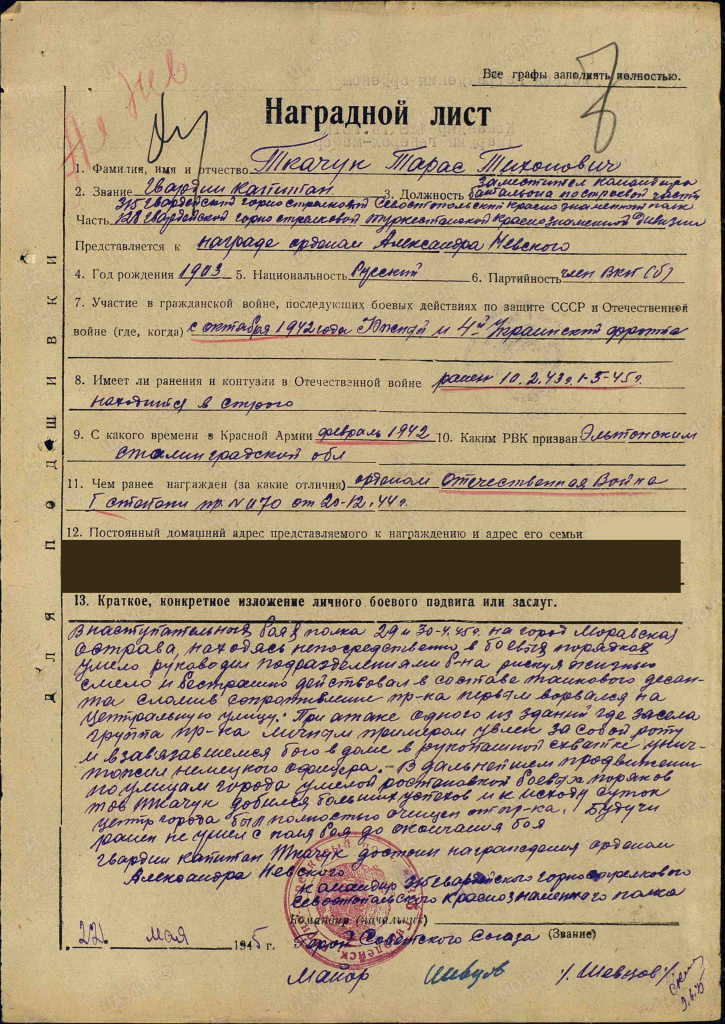 Все графы заполнять полностью.
Наградной лист
1. Фамилия, имя и отчество Ткачук Тарас Тихонович
2. Звание Гвардии капитан 3. Должность Заместитель командира
батальона по строевой части
315 гвардейский горно стрелковый Севастопольский краснознаменный полк
Часть 128 гвардейской горно стрелковой Туркестанской Краснознаменной дивизии
Представляется к награде орденом Александра Невского
4. Год рождения 1903 5. Национальность Русский 6. Партийность член ВКП(б)
7. Участие в гражданской войне, последующих боевых действиях по защите СССР и Отечественной
войне (где, когда) с октября 1942 года и 4й Украинский фронта
8. Имеет ли ранения и контузии в Отечественной войне ранен 10.2.43г. 1-5-45г.
находится в строю
9. С какого времени в Красной Армии февраль 1942 10. Каким РВК призван Эльтонским
Сталинградской обл
11. Чем ранее награжден (за какие отличия) орденом Отечественная Война
I степени пр. N 070 от 20-12.44г.
12. Постоянный домашний адрес представляемого к награждению и адрес его семьи
13. Краткое, конкретное изложение личного боевого подвига или заслуг.
В наступательных боях полка 29 и 30-4.45г. на город Моравская
острава, находясь непосредственно в боевых порядках
умело руководил подразделениями б-на рискуя жизнью
смело и бесстрашно действовал в составе танкового десан-
та сломив сопротивление пр-ка первым ворвался на
Центральную улицу. При атаке одного из зданий где засела
группа пр-ка личным примером увлек за собой роту
и взавязавшемся бою в доме в рукопашной схватке унич-
тожил немецкого офицера. - В дальнейшем продвижении
по улицам города умелой ростановкой боевых порядков
тов Ткачук добился больших успехов и к исходу суток
центр города был полностью очищен от пр-ка. Будучи
ранен не ушел с поля боя до окончания боя
Гвардии капитан Ткачук достоин награждения орденом
Александра Невского
Командир 315 гвардейского горнострелкового
Севастопольского Краснознаменного полка
Командир (начальник)
Герой Советского Союза (Звание)
"22" мая 1945 г.
Майор Шевцов /Шевцов/
ДЛЯ ПОДШИВКИ